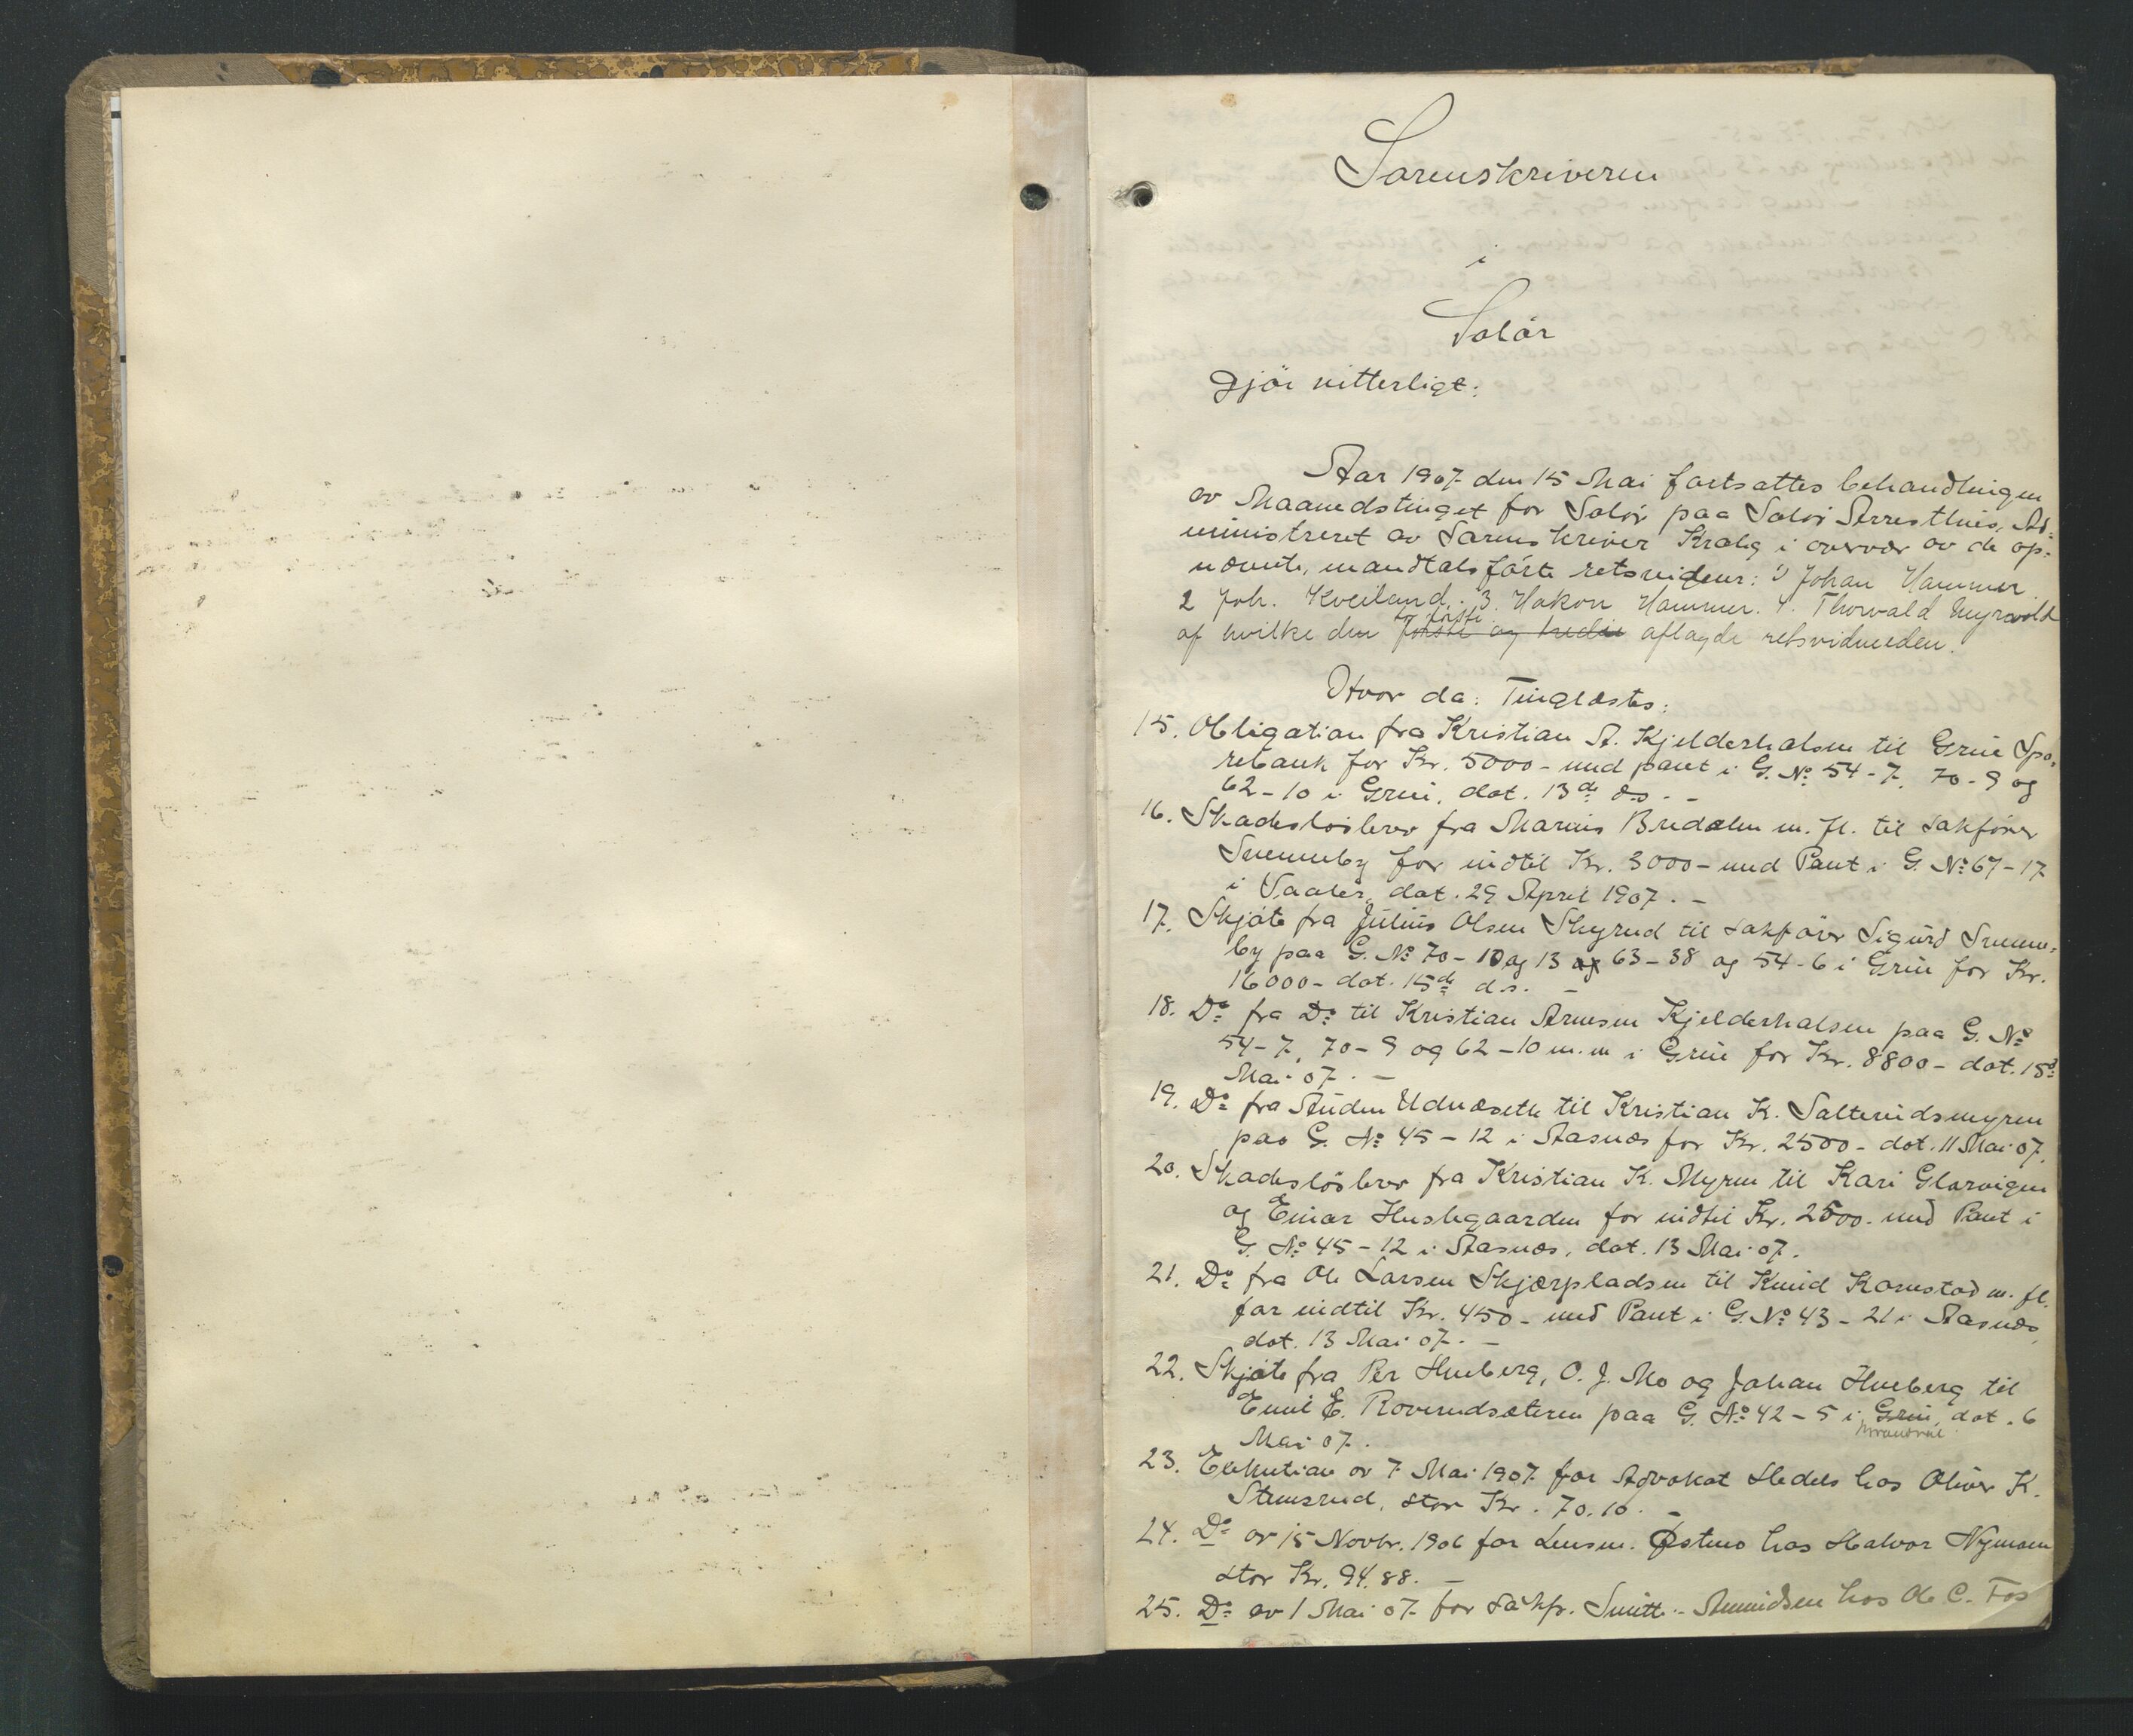 Sorenskriveren
i
Solör
gjör vitterligt:
Aar 1907 den 15 Mai fortsattes behandlingen
av Maanedstinget for Solör paa Solör Arresthus, Ad-
ministreret av Sorenskriver Kralig i overvær av de op-
nævnte, mandtalsförte retsvidner: 1) Johan Hammer.
2 Joh. Kveiland. 3. Hakon Hammer. 4. Thorvald Myrvold
af hvilke den to förste förste og tredie aflagde retsvidneeden.
Hvor da: Tinglæstes:
15. Obligation fra Kristian A. Kjelderhalsen til Grue Spa-
rebank for Kr. 5000- med pant i G. No 54-7, 70-9 og
62-10 i Grue, dat. 13de ds. -
16. Skadeslösbrev fra Marius Bredalen m. fl. til Sakförer
Svenneby for indtil Kr. 3000- med Pant i G. No 67-17
i Vaaler, dat. 29 April 1907. -
17. Skjöte fra Julius Olsen Skyrud til Sakförer Sigurd Svenne-
by paa G. No 70-10 og 13 og 63-38 og 54-6 i Grue for Kr.
16000- dat. 15de ds. -
18. Do fra Do til Kristian Arnesen Kjelderhalsen paa G. No
54-7, 70-9 og 62-10 m.m i Grue for Kr. 8800- dat. 15de
Mai 07. -
19. Do fra Audun Udnæseth til Kristian K. Salterudsmyren
paa G. No 45-12 i Aasnes for Kr. 2500- dat. 11 Mai 07.
20. Skadeslösbrev fra Kristian K. Myren til Kari Glorvigen
og Einar Huslegaarden for indtil Kr. 2500- med Pant i
G. No 45-12 i Aasnes, dat. 13 Mai 07.
21. Do fra Ole Larsen Skjærpladsen til Knud Kornstad m. fl.
for indtil Kr. 450- med Pant i G. No 43-21 i Aasnes,
dat. 13 Mai 07. -
22. Skjöte fra Per Hueberg, O. J. Mo og Johan Hueberg til
Emil E. Roverudsæteren paa G. No 42-5 i Grue, dat. 6
Brandval
Mai 07.
23. Exekution av 7 Mai 1907 for Advokat Hedels hos Oliver K.
Stensrud, stor Kr. 70.10. -
24. Do av 15 Novbr. 1906 for Lensm. Østmo hos Halvor Nymoen
stor Kr. 94.88. -
25. Do av 1 Mai 07 for Sakfr. Smitt- Amundsen hos Ole C. Fos